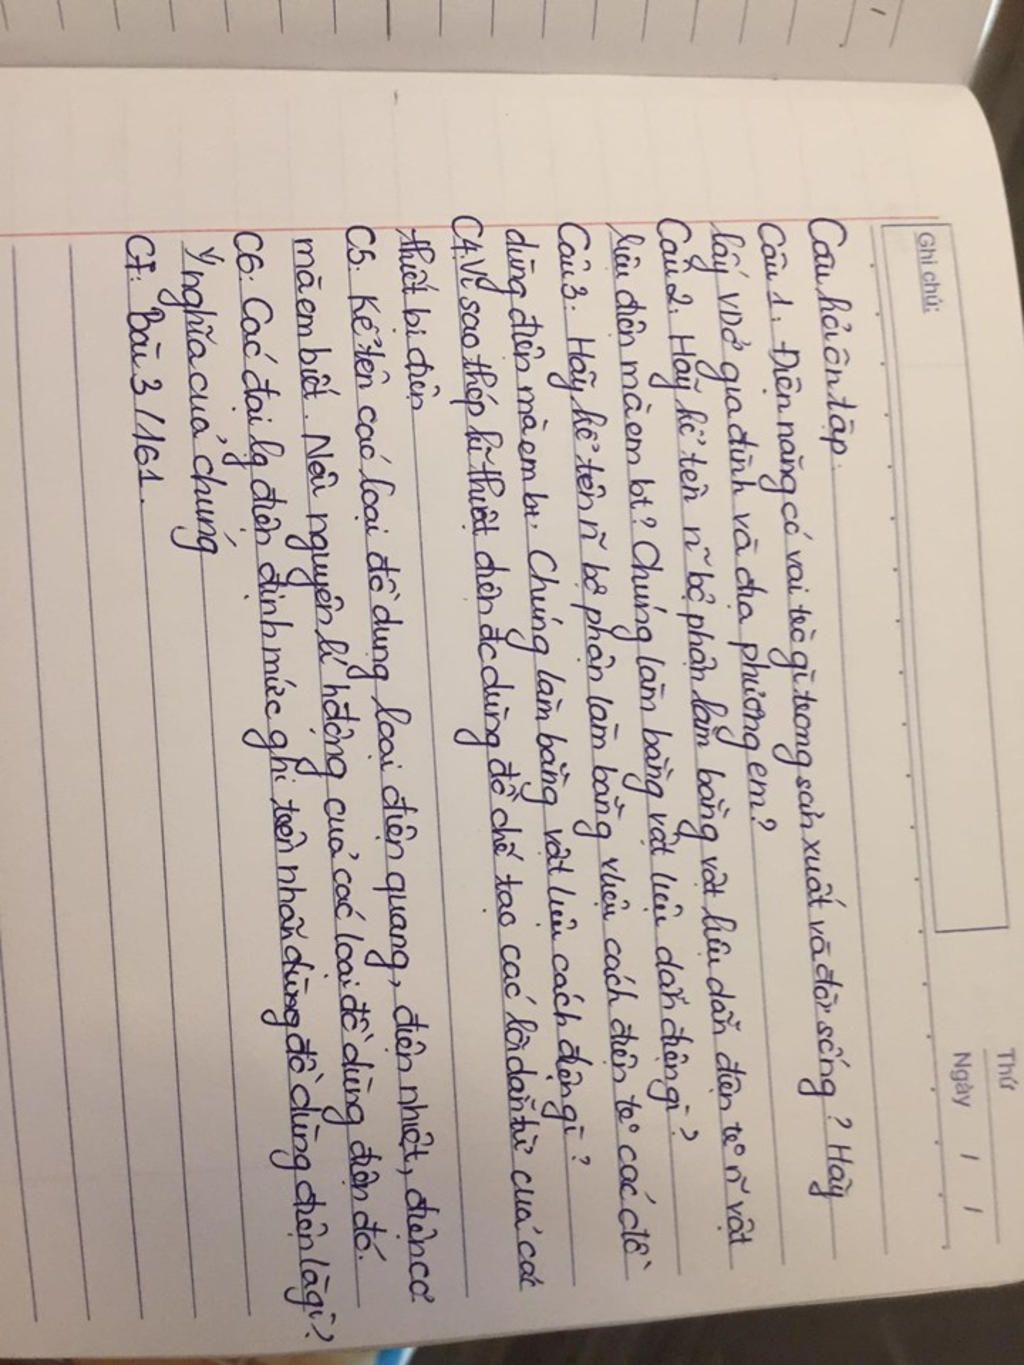 Ghi chú:
Thứ
Ngày / /
Câu hỏi ôn tập.
Câu 1. Điện năng có vai trò gì trong sản xuất và đời sống? Hãy
lấy VD ở gia đình và địa phương em?
Câu 2. Hãy kể tên n~ bộ phận làm bằng vật liệu dẫn điện to n~ vật
liệu điện mà em bt? Chúng làm bằng vật liệu dẫn điện gì?
Câu 3. Hãy kể tên n~ bộ phận làm bằng vliệu cách điện to các đồ
dùng điện mà em bt. Chúng làm bằng vật liệu cách điện gì?
C4. Vì sao thép kĩ thuật điện đc dùng để chế tạo các lõi dẫn từ của các
thiết bị điện
C5. Kể tên các loại đồ dụng loại điện quang, điện nhiệt, điện cơ
mà em biết. Nêu nguyên lí hđộng của các loại đồ dùng điện đó.
C6. Các đại lg điện định mức ghi trên nhãn dùng đồ dùng điện là gì?
Ý nghĩa của chúng
C7: Bài 3/161.